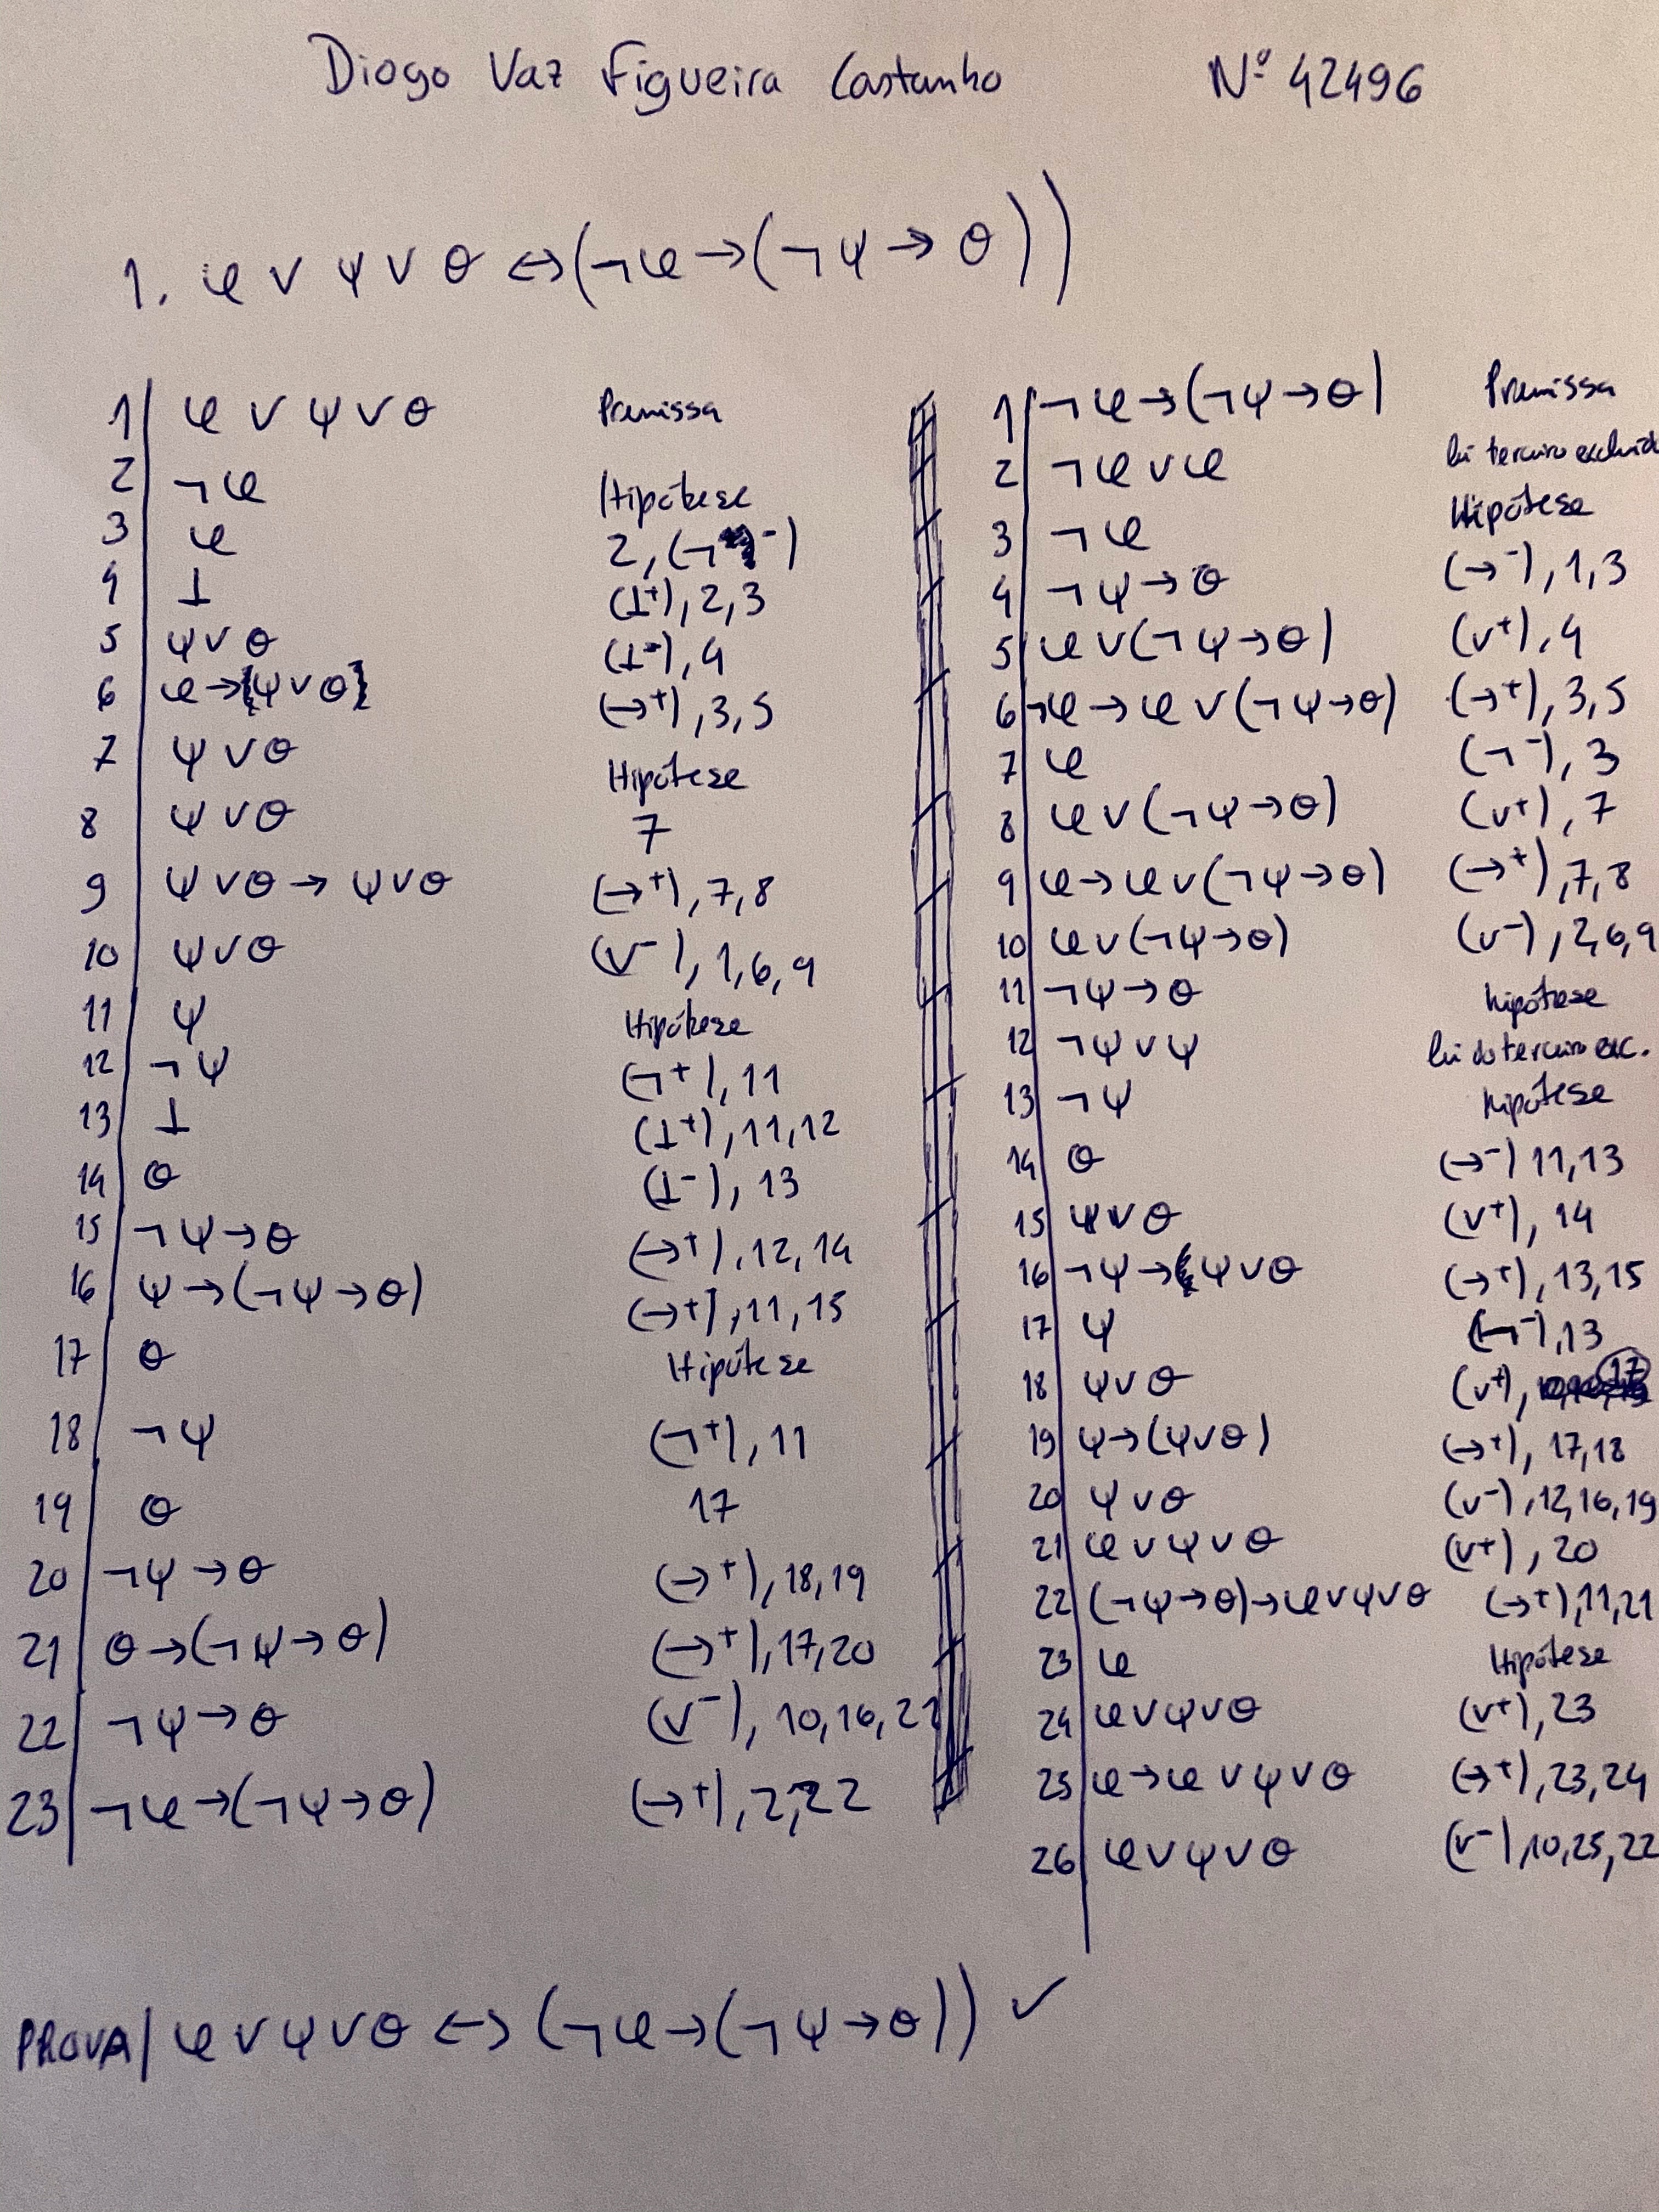 Diogo Vaz Figueira Castanho Nº 42496
1. φ ∨ ψ ∨ θ ↔ (¬φ → (¬ψ → θ))
1 φ ∨ ψ ∨ θ Premissa
2 ¬φ Hipótese
3 φ 2, (¬ -)
4 ⊥ (⊥+), 2, 3
5 ψ ∨ θ (⊥-), 4
6 φ → (ψ ∨ θ) (→+), 3, 5
7 ψ ∨ θ Hipótese
8 ψ ∨ θ 7
9 ψ ∨ θ → ψ ∨ θ (→+), 7, 8
10 ψ ∨ θ (∨-), 1, 6, 9
11 ψ Hipótese
12 ¬ψ (¬+), 11
13 ⊥ (⊥+), 11, 12
14 θ (⊥-), 13
15 ¬ψ → θ (→+), 12, 14
16 ψ → (¬ψ → θ) (→+), 11, 15
17 θ Hipótese
18 ¬ψ (¬+), 11
19 θ 17
20 ¬ψ → θ (→+), 18, 19
21 θ → (¬ψ → θ) (→+), 17, 20
22 ¬ψ → θ (∨-), 10, 16, 21
23 ¬φ → (¬ψ → θ) (→+), 2, 22
1 ¬φ → (¬ψ → θ) Premissa
2 ¬φ ∨ φ lei terceiro excluid
3 ¬φ Hipótese
4 ¬ψ → θ (→-), 1, 3
5 φ ∨ (¬ψ → θ) (∨+), 4
6 ¬φ → φ ∨ (¬ψ → θ) (→+), 3, 5
7 φ (¬-), 3
8 φ ∨ (¬ψ → θ) (∨+), 7
9 φ → φ ∨ (¬ψ → θ) (→+), 7, 8
10 φ ∨ (¬ψ → θ) (∨-), 2, 6, 9
11 ¬ψ → θ hipótese
12 ¬ψ ∨ ψ lei do terceiro exc.
13 ¬ψ hipótese
14 θ (→-) 11, 13
15 ψ ∨ θ (∨+), 14
16 ¬ψ → ψ ∨ θ (→+), 13, 15
17 ψ (¬-), 13
18 ψ ∨ θ (∨+), 17
19 ψ → (ψ ∨ θ) (→+), 17, 18
20 ψ ∨ θ (∨-), 12, 16, 19
21 φ ∨ ψ ∨ θ (∨+), 20
22 (¬ψ → θ) → φ ∨ ψ ∨ θ (→+), 11, 21
23 φ Hipótese
24 φ ∨ ψ ∨ θ (∨+), 23
25 φ → φ ∨ ψ ∨ θ (→+), 23, 24
26 φ ∨ ψ ∨ θ (∨-), 10, 25, 22
PROVA | φ ∨ ψ ∨ θ ↔ (¬φ → (¬ψ → θ)) ✓